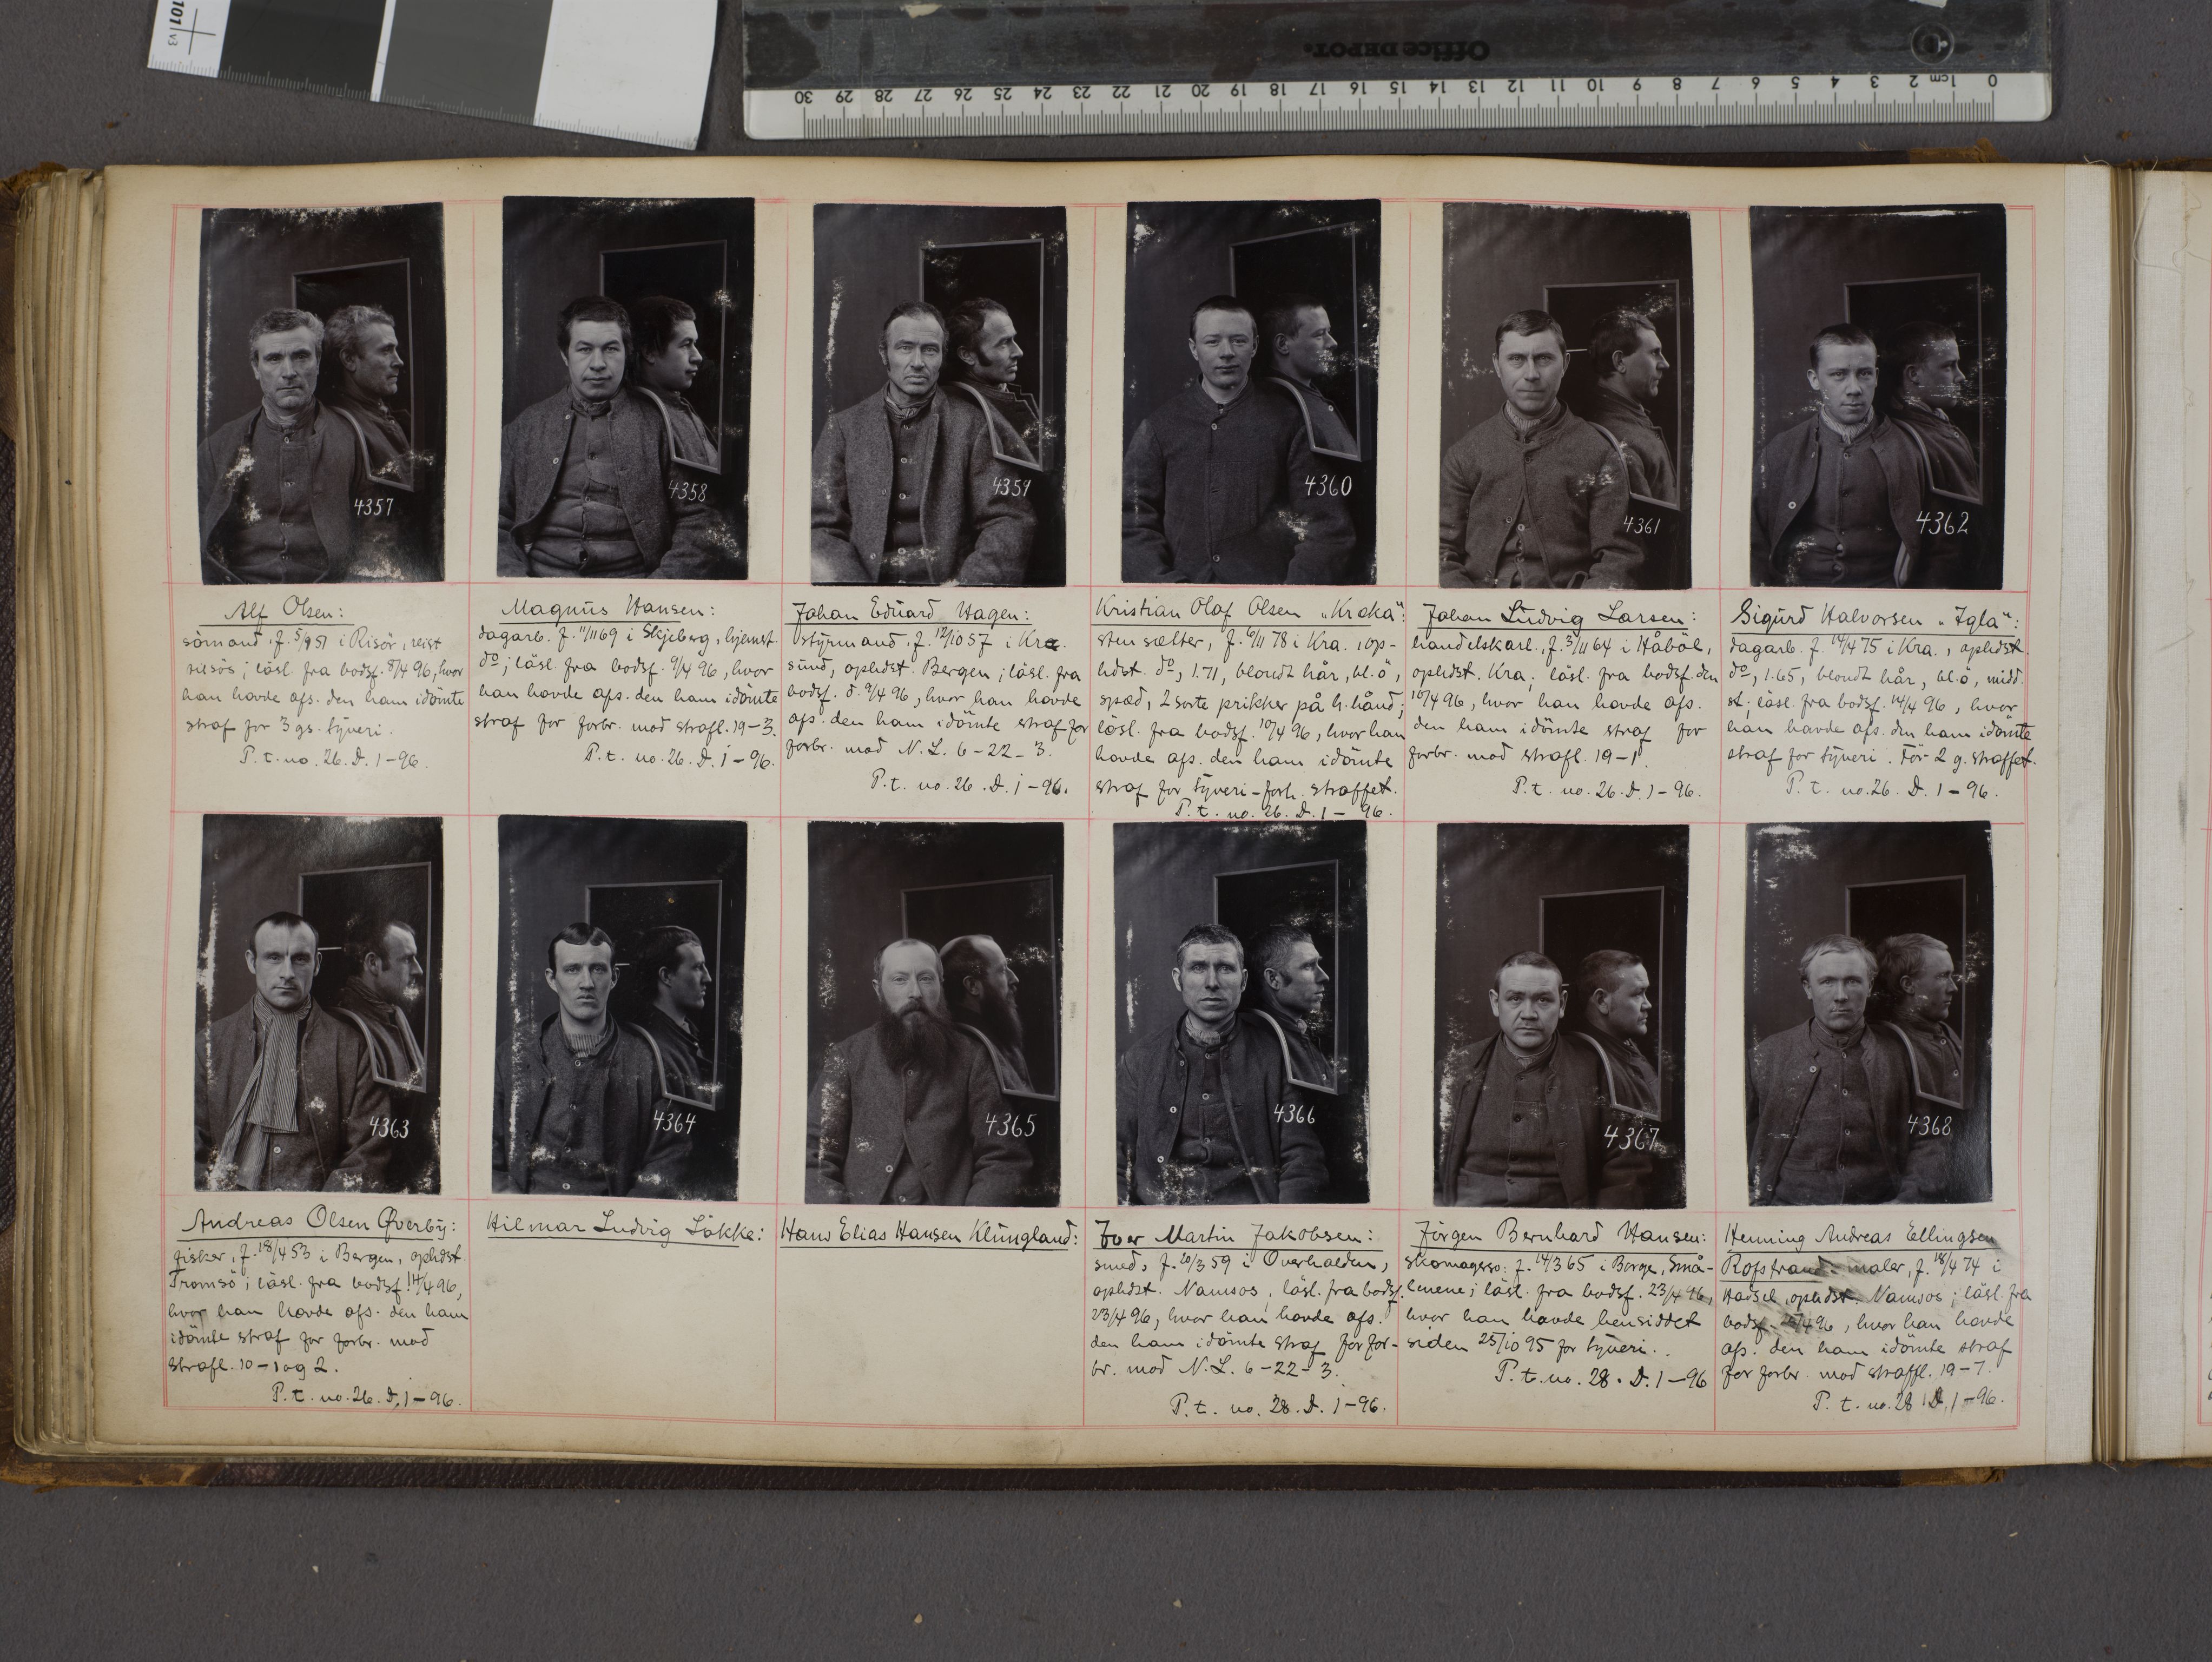 101 v3
Office DEPOT.
0 1cm 2 3 4 5 6 7 8 9 10 11 12 13 14 15 16 17 18 19 20 21 22 23 24 25 26 27 28 29 30
4357
Alf Olsen:
sömand, f. 5/9 51 i Risör, reist
; lösl. fra bodsf. 8/4 96, hvor
han havde afs. den ham idömte
straf for 3 gs. tyveri.
P. t. no. 26. D. 1 - 96.
4358
Magnus Hansen:
dagarb. f. 11/11 69 i Skjeberg, hjemst.
do; lösl. fra bodsf. 9/4 96, hvor
han havde afs. den ham idömte
straf for forbr. mod strafl. 19-3.
P. t. no. 26. D. 1 - 96.
4359
Johan Eduard Hagen:
styrmand, f. 12/10 57 i Kra.
sund, opholdst. Bergen; lösl. fra
bodsf. d. 9/4 96, hvor han havde
afs. den ham idömte straf for
forbr. mod N. L. 6-22-3.
P. t. no. 26. D. 1 - 96.
4360
Kristian Olaf Olsen "Kraka":
stensætter, f. 6/11 78 i Kra. , op-
hdst. do, 1.71, blondt hår, bl. ö,
spæd, 2 sorte prikker på h. hånd;
lösl. fra bodsf. 10/4 96, hvor han
havde afs. den ham idömte
straf for tyveri - forh. straffet.
P. t. no. 26. D. 1 - 96.
4361
Johan Ludvig Larsen:
handelskarl, f. 3/11 64 i Håböl,
ophdst. Kra; lösl. fra bodsf. den
10/4 96, hvor han havde afs.
den ham idömte straf for
forbr. mod strafl. 19-1.
P. t. no. 26. D. 1 - 96.
4362
Sigurd Halvorsen "Igla":
dagarb. f. 14/4 75 i Kra. , ophdst.
do, 1.65, blondt hår, bl. ö, midd.
st; lösl. fra bodsf. 14/4 96, hvor
han havde afs. den ham idömte
straf for tyveri. För 2 g. straffet.
P. t. no. 26. D. 1 - 96.
4363
Andreas Olsen Øverby:
fisker, f. 18/4 53 i Bergen, ophdst.
Tromsö; lösl. fra bodsf. 14/4 96,
hvor han havde afs. den ham
idömte straf for forbr. mod
strafl. 10-1 og 2.
P. t. no. 26. D. 1 - 96.
4364
Hilmar Ludvig Lökke:
4365
Hans Elias Hansen Klungland:
4366
Iver Martin Jakobsen:
smed, f. 20/3 59 i Overhalden,
ophdst. Namsos, lösl. fra bodsf.
23/4 96, hvor han havde afs.
den ham idömte straf for for-
br. mod N. L. 6-22-3.
P. t. no. 28. D. 1 - 96.
4367
Jörgen Bernhard Hansen:
skomagersv: f. 14/3 65 i Borge, Små-
lenene; lösl. fra bodsf. 23/4 96,
hvor han havde hensiddet
siden 25/10 95 for tyveri.
P. t. no. 28. D. 1 - 96
4368
Henning Andreas Ellingsen
Rofstrand: maler, f. 18/4 74 i
Hadsel, ophdst. Namsos; lösl. fra
bodsf. 96, hvor han havde
afs. den ham idömte straf
for forbr. mod straffl. 19-7.
P. t. no. 28 D. 1 - 96.